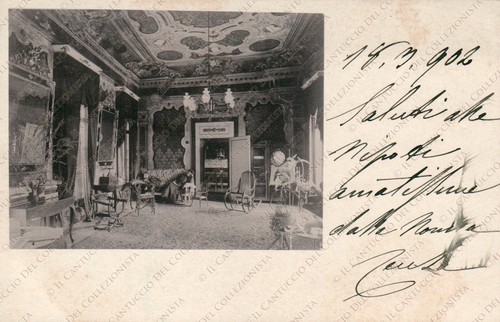 18.3.902
Saluti alle
Nipoti
amatissime
dalla Nonna
© IL CANTUCCIO DEL COLLEZIONISTA